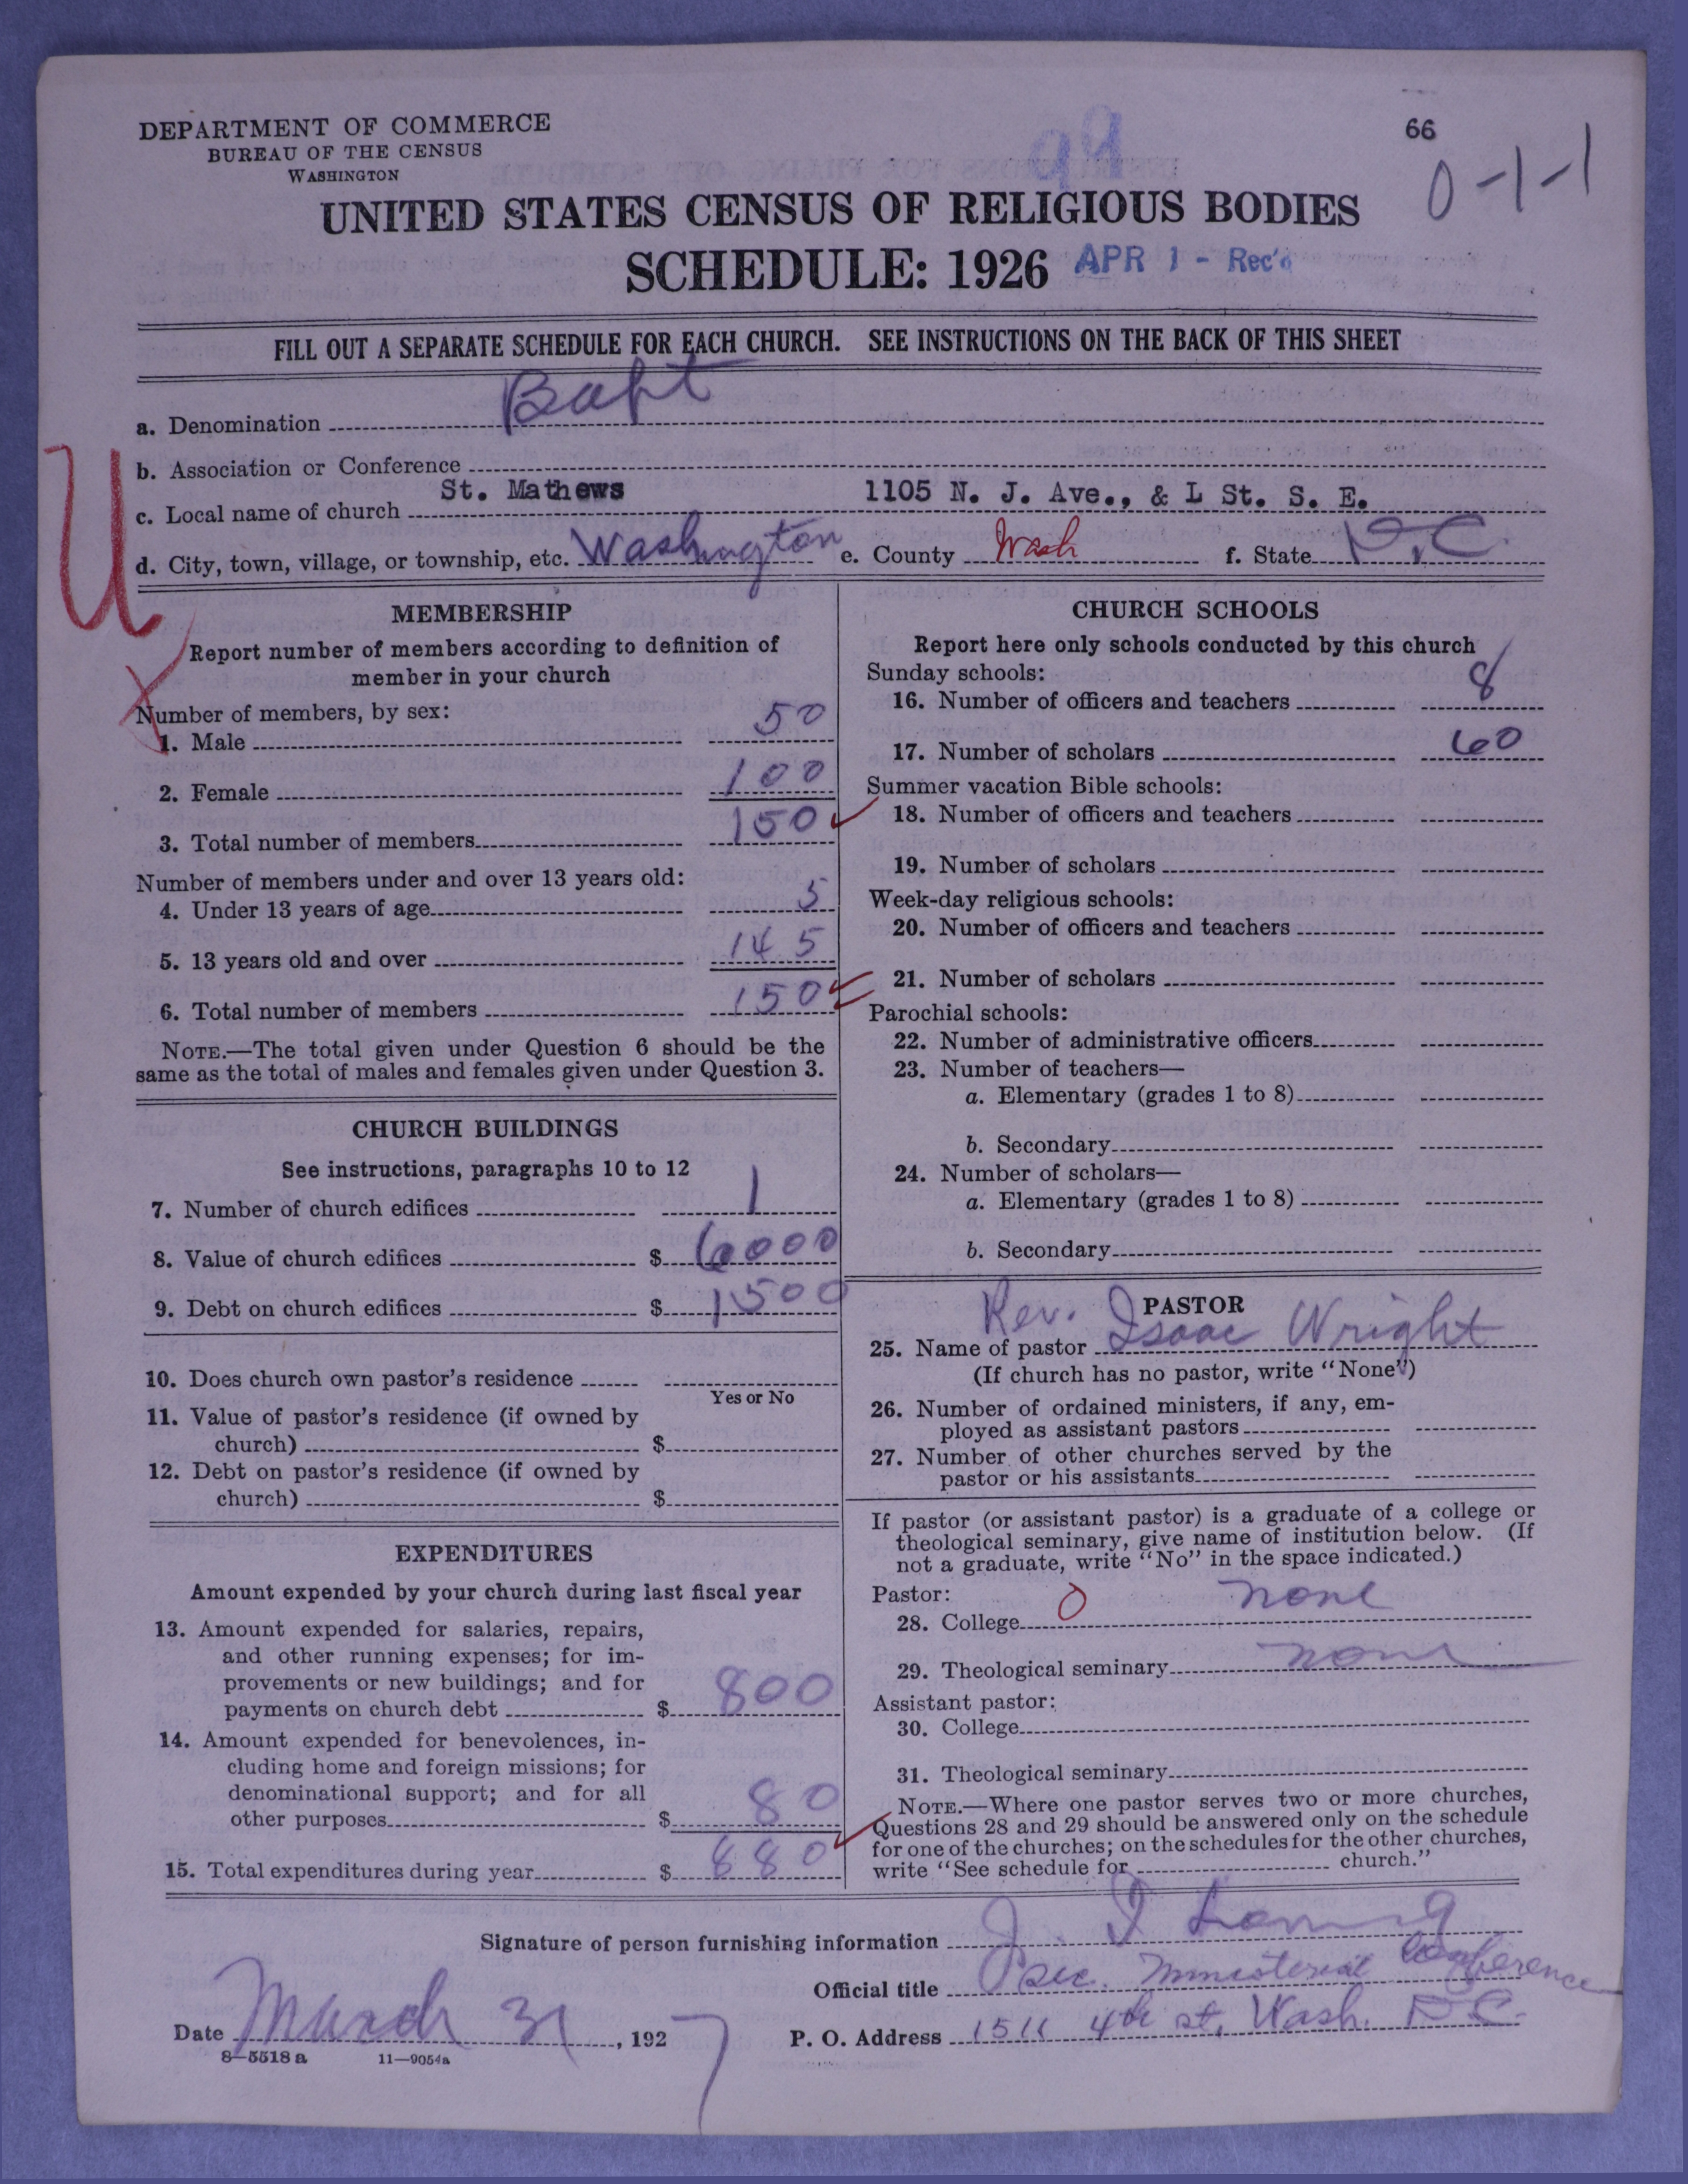 DEPARTMENT OF COMMERCE
BUREAU OF THE CENSUS
WASHINGTON
66
0-1-1
99
UNITED STATES CENSUS OF RELIGIOUS BODIES
SCHEDULE: 1926 APR 1 - Rec'd
FILL OUT A SEPARATE SCHEDULE FOR EACH CHURCH. SEE INSTRUCTIONS ON THE BACK OF THIS SHEET
a. Denomination Bapt
b. Association or Conference
c. Local name of church St. Mathews 1105 N. J. Ave., & L St. S. E.
d. City, town, village, or township, etc. Washington e. County Wash f. State D.C.
U
X
MEMBERSHIP
Report number of members according to definition of
member in your church
Number of members, by sex:
1. Male 50
2. Female 100
3. Total number of members 150
Number of members under and over 13 years old:
4. Under 13 years of age 5
5. 13 years old and over 145
6. Total number of members 150
NOTE.—The total given under Question 6 should be the
same as the total of males and females given under Question 3.
CHURCH BUILDINGS
See instructions, paragraphs 10 to 12
7. Number of church edifices 1
8. Value of church edifices $ 6000
9. Debt on church edifices $ 1500
10. Does church own pastor's residence
Yes or No
11. Value of pastor's residence (if owned by
church) $
12. Debt on pastor's residence (if owned by
church) $
EXPENDITURES
Amount expended by your church during last fiscal year
13. Amount expended for salaries, repairs,
and other running expenses; for im-
provements or new buildings; and for
payments on church debt $ 800
14. Amount expended for benevolences, in-
cluding home and foreign missions; for
denominational support; and for all
other purposes $ 80
15. Total expenditures during year $ 880
CHURCH SCHOOLS
Report here only schools conducted by this church
Sunday schools:
16. Number of officers and teachers 8
17. Number of scholars 60
Summer vacation Bible schools:
18. Number of officers and teachers
19. Number of scholars
Week-day religious schools:
20. Number of officers and teachers
21. Number of scholars
Parochial schools:
22. Number of administrative officers
23. Number of teachers—
a. Elementary (grades 1 to 8)
b. Secondary
24. Number of scholars—
a. Elementary (grades 1 to 8)
b. Secondary
PASTOR
25. Name of pastor Rev. Isaac Wright
(If church has no pastor, write "None")
26. Number of ordained ministers, if any, em-
ployed as assistant pastors
27. Number of other churches served by the
pastor or his assistants
If pastor (or assistant pastor) is a graduate of a college or
theological seminary, give name of institution below. (If
not a graduate, write "No" in the space indicated.)
Pastor:
28. College 0 none
29. Theological seminary none
Assistant pastor:
30. College
31. Theological seminary
NOTE.—Where one pastor serves two or more churches,
Questions 28 and 29 should be answered only on the schedule
for one of the churches; on the schedules for the other churches,
write "See schedule for church."
Signature of person furnishing information J. I. Loving
Official title Sec. Ministerial Conference
Date March 31, 1927 P. O. Address 1511 4th st, Wash. D.C.
8—5518 a 11—9054a